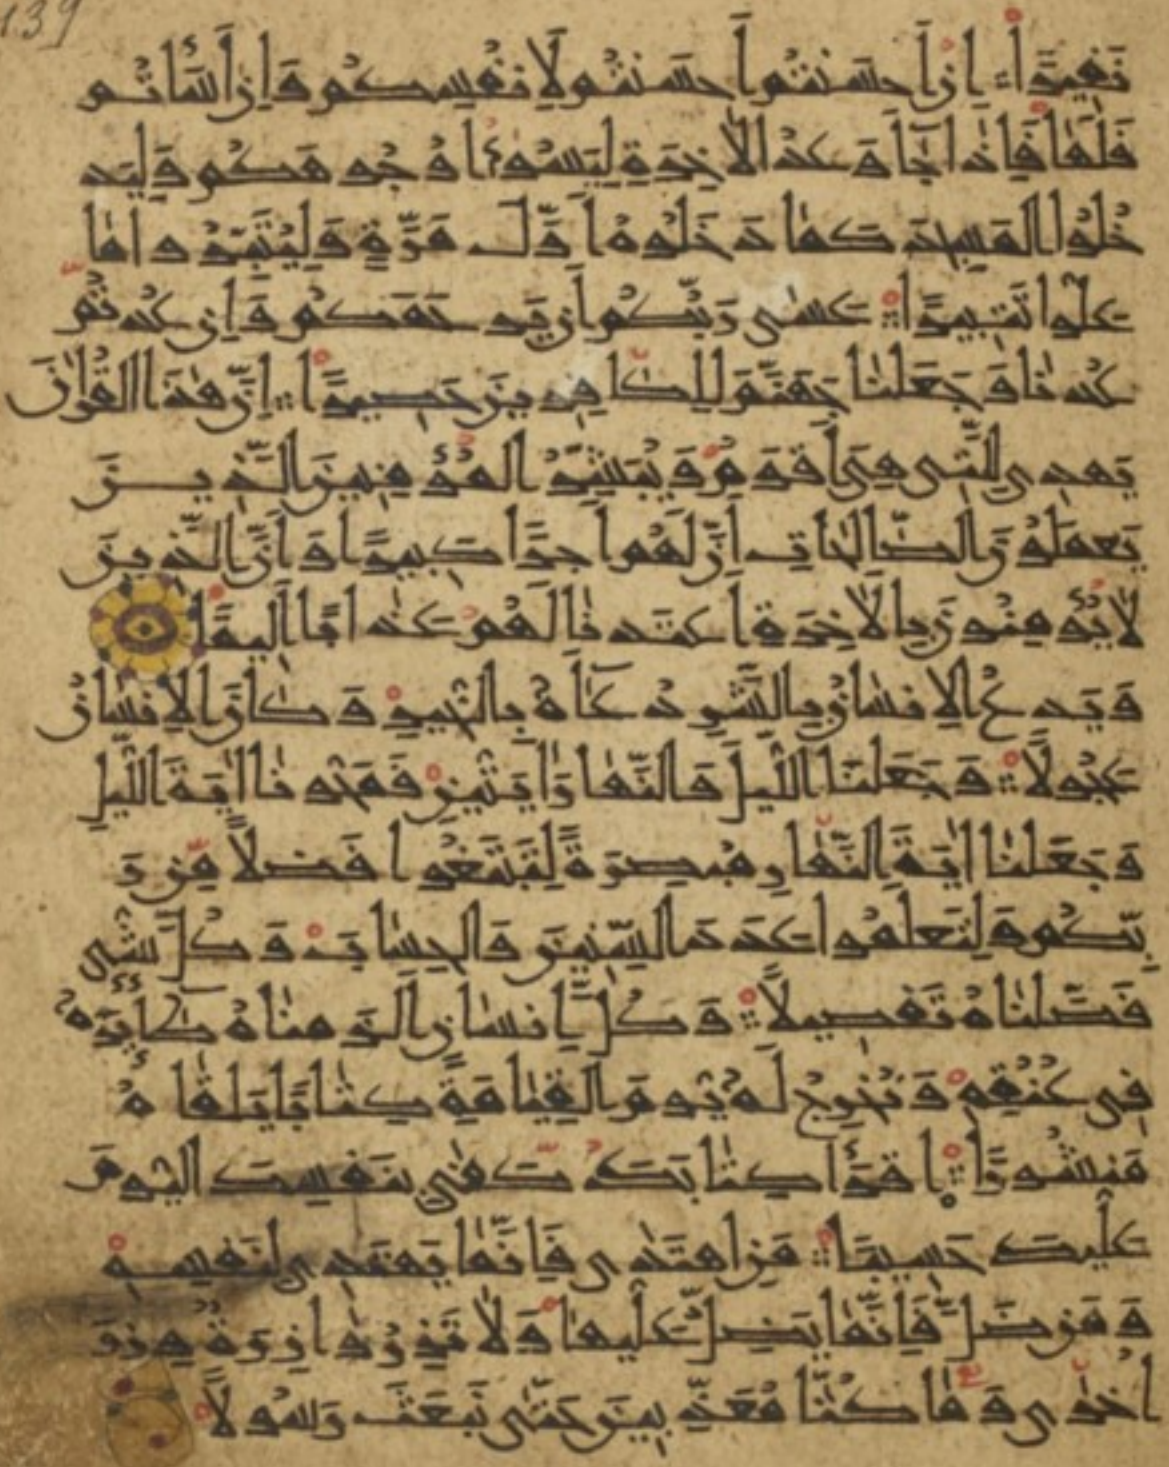 139
نَفِيرًا إِنْ أَحْسَنْتُمْ أَحْسَنْتُمْ لِأَنْفُسِكُمْ وَإِنْ أَسَأْتُمْ
فَلَهَا فَإِذَا جَاءَ وَعْدُ الْآخِرَةِ لِيَسُوءُا وُجُوهَكُمْ وَلِيَد
خُلُوا الْمَسْجِدَ كَمَا دَخَلُوهُ أَوَّلَ مَرَّةٍ وَلِيُتَبِّرُوا مَا
عَلَوْا تَتْبِيرًا عَسَى رَبُّكُمْ أَنْ يَرْحَمَكُمْ وَإِنْ عُدْتُمْ
عُدْنَا وَجَعَلْنَا جَهَنَّمَ لِلْكَافِرِينَ حَصِيرًا إِنَّ هَذَا الْقُرْآنَ
يَهْدِي لِلَّتِي هِيَ أَقْوَمُ وَيُبَشِّرُ الْمُؤْمِنِينَ الَّذِينَ
يَعْمَلُونَ الصَّالِحَاتِ أَنَّ لَهُمْ أَجْرًا كَبِيرًا وَأَنَّ الَّذِينَ
لَا يُؤْمِنُونَ بِالْآخِرَةِ أَعْتَدْنَا لَهُمْ عَذَابًا أَلِيمًا
وَيَدْعُ الْإِنْسَانُ بِالشَّرِّ دُعَاءَهُ بِالْخَيْرِ وَكَانَ الْإِنْسَانُ
عَجُولًا وَجَعَلْنَا اللَّيْلَ وَالنَّهَارَ آيَتَيْنِ فَمَحَوْنَا آيَةَ اللَّيْلِ
وَجَعَلْنَا آيَةَ النَّهَارِ مُبْصِرَةً لِتَبْتَغُوا فَضْلًا مِنْ رَ
بِّكُمْ وَلِتَعْلَمُوا عَدَدَ السِّنِينَ وَالْحِسَابَ وَكُلَّ شَيْءٍ
فَصَّلْنَاهُ تَفْصِيلًا وَكُلَّ إِنْسَانٍ أَلْزَمْنَاهُ طَائِرَهُ
فِي عُنُقِهِ وَنُخْرِجُ لَهُ يَوْمَ الْقِيَامَةِ كِتَابًا يَلْقَاهُ
مَنْشُورًا اقْرَأْ كِتَابَكَ كَفَى بِنَفْسِكَ الْيَوْمَ
عَلَيْكَ حَسِيبًا مَنِ اهْتَدَى فَإِنَّمَا يَهْتَدِي لِنَفْسِهِ
وَمَنْ ضَلَّ فَإِنَّمَا يَضِلُّ عَلَيْهَا وَلَا تَزِرُ وَازِرَةٌ وِزْرَ
أُخْرَى وَمَا كُنَّا مُعَذِّبِينَ حَتَّى نَبْعَثَ رَسُولًا